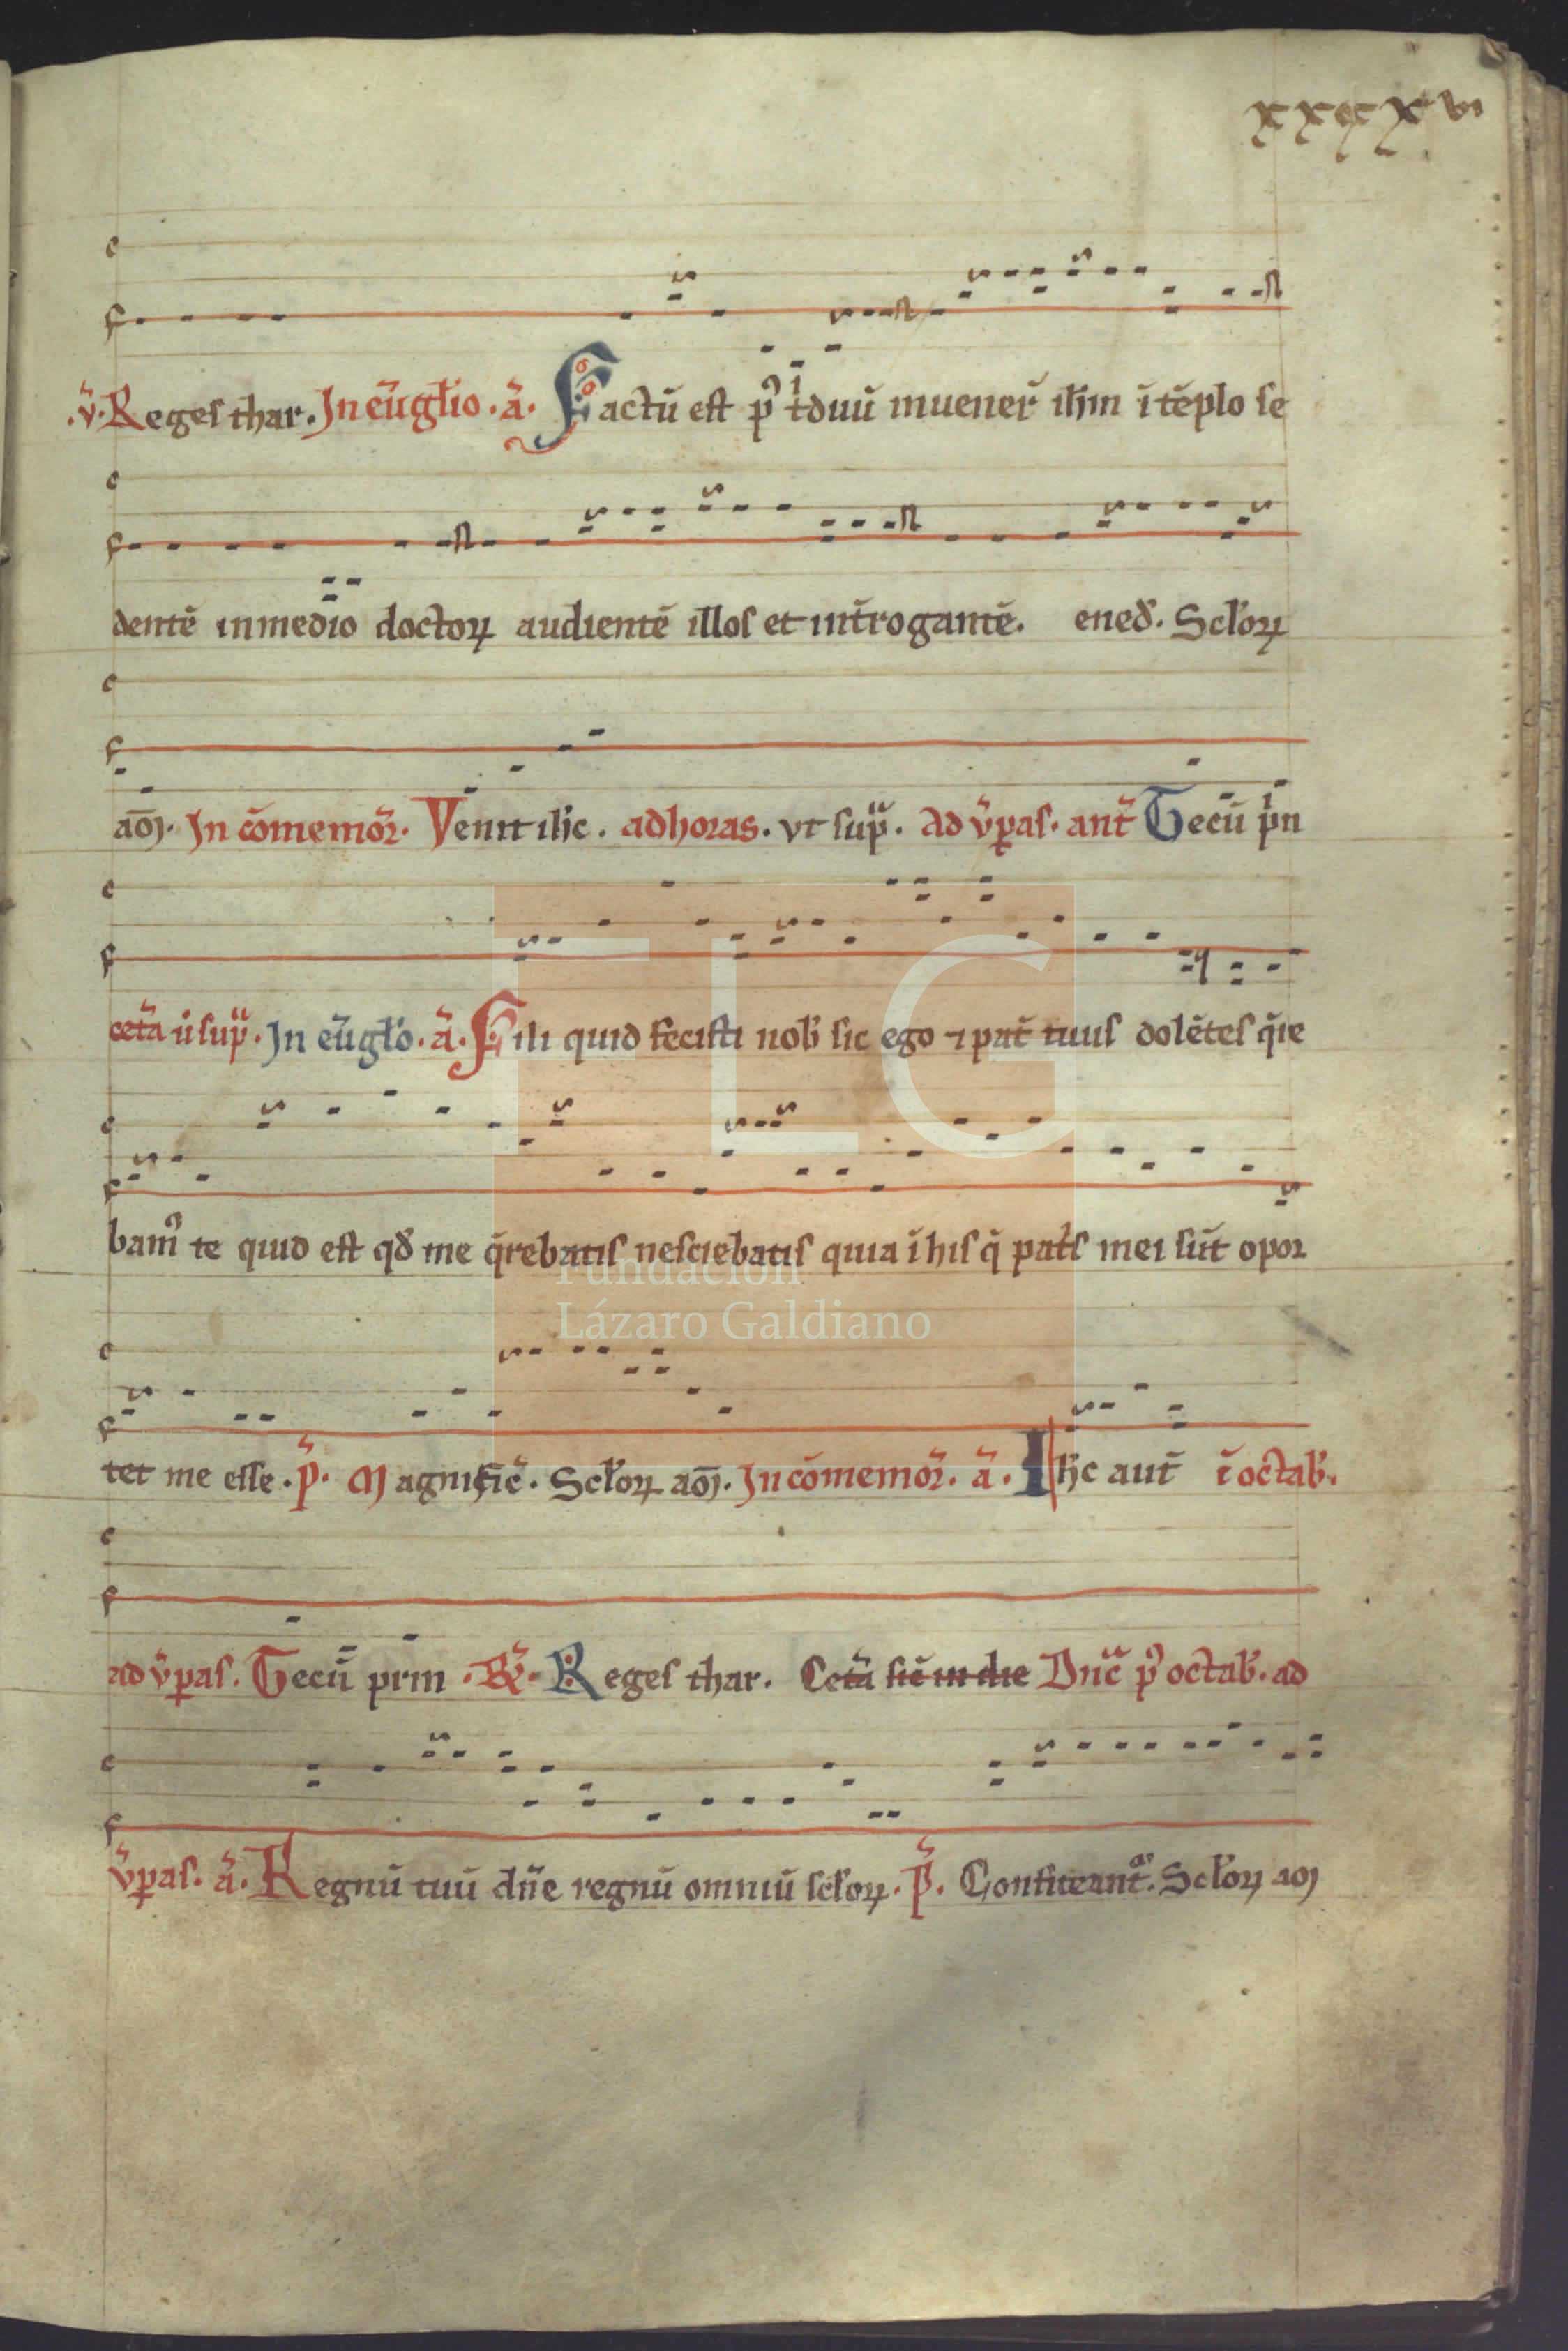 xxxxvi
.v̄. Reges thar. In eu̅gl̅io. a̅. Factū est pꝰ tͥduū inuener̄ ih̅m ī tēplo se
dentē in medio doctoꝝ audientē illos et int̄rogantē. ened̄. Scl̅oꝝ
ao̅ꝫ. In cōmemor̄. Venit ih̅c. ad horas. vt sup̄. Ad v̄ꝑas. ant̄ Tecū pͥn
cet̄a ū sup̄. In eu̅gl̅o. a̅. Fili quid fecisti nob̄ sic ego ⁊ pat̄ tuus dolētes q̄re
bamꝰ te quid est qd̄ me q̄rebatis nesciebatis quia ī his q̄ pat̄s mei sūt opor
tet me esse. p̄. Magnific̄. Scl̅oꝝ ao̅ꝫ. In cōmemor̄. a̅. Ih̅c aut̄ ī octab̄.
ad v̄ꝑas. Tecū prin. R̄. Reges thar. Cet̄a sic̄ in die Dn̅c pꝰ octab̄. ad
v̄ꝑas. a̅. Regnū tuū dn̅e regnū omniū sc̅loꝝ. p̄. Confiteant̄. Scl̅oꝝ aoꝫ
FLG
Fundación
Lázaro Galdiano